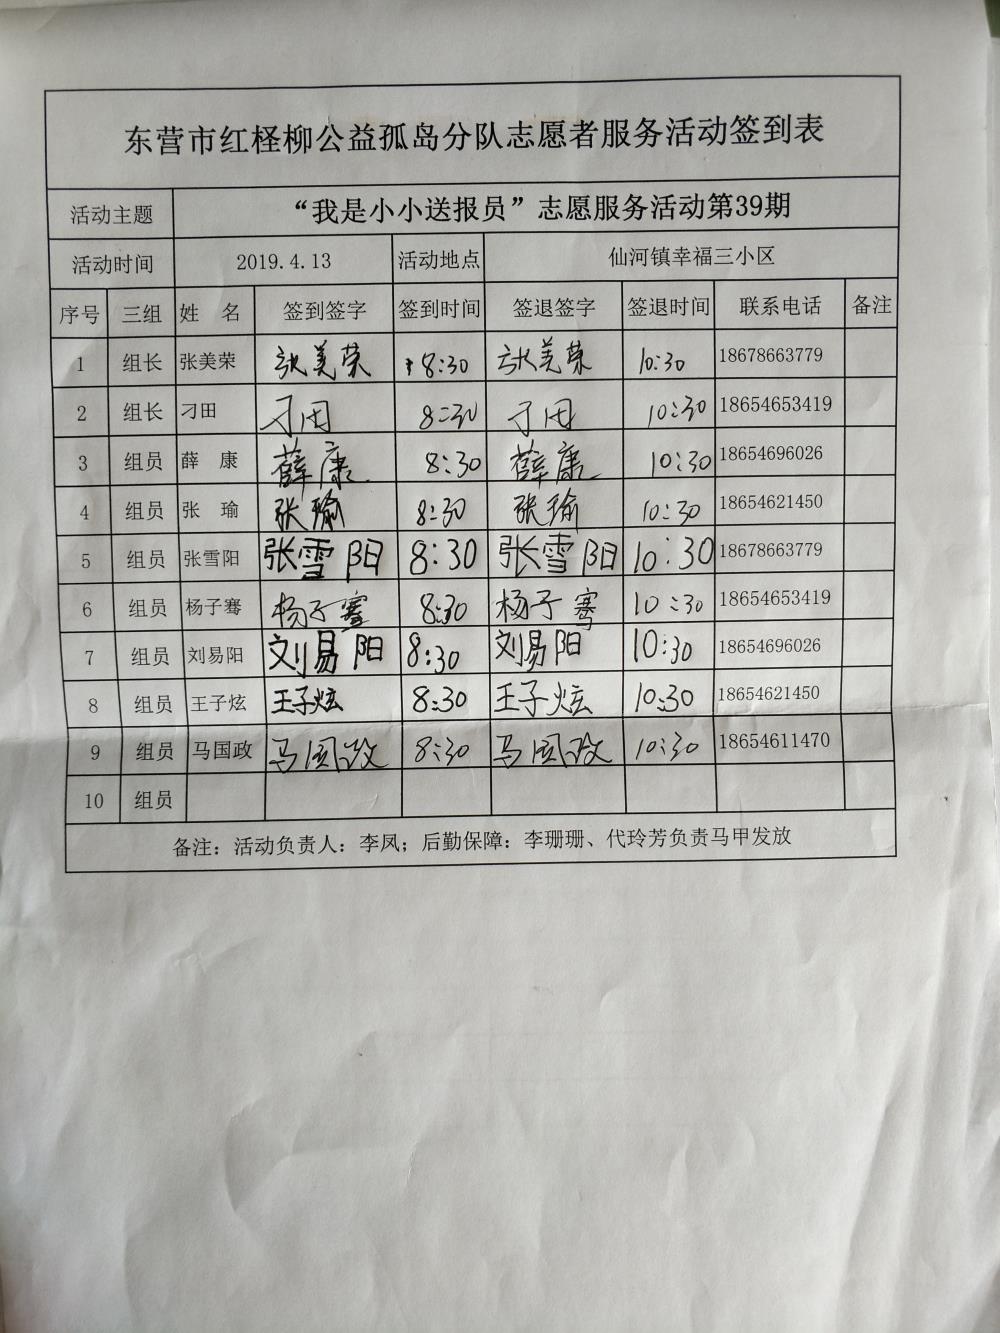 东营市红柽柳公益孤岛分队志愿者服务活动签到表
活动主题 “我是小小送报员”志愿服务活动第39期
活动时间 2019.4.13 活动地点 仙河镇幸福三小区
序号 三组 姓 名 签到签字 签到时间 签退签字 签退时间 联系电话 备注
1 组长 张美荣 张美荣 8:30 张美荣 10:30 18678663779
2 组长 刁田 刁田 8:30 刁田 10:30 18654653419
3 组员 薛 康 薛康 8:30 薛康 10:30 18654696026
4 组员 张 瑜 张瑜 8:30 张瑜 10:30 18654621450
5 组员 张雪阳 张雪阳 8:30 张雪阳 10:30 18678663779
6 组员 杨子骞 杨子骞 8:30 杨子骞 10:30 18654653419
7 组员 刘易阳 刘易阳 8:30 刘易阳 10:30 18654696026
8 组员 王子炫 王子炫 8:30 王子炫 10:30 18654621450
9 组员 马国政 马国政 8:30 马国政 10:30 18654611470
10 组员
备注：活动负责人：李凤；后勤保障：李珊珊、代玲芳负责马甲发放